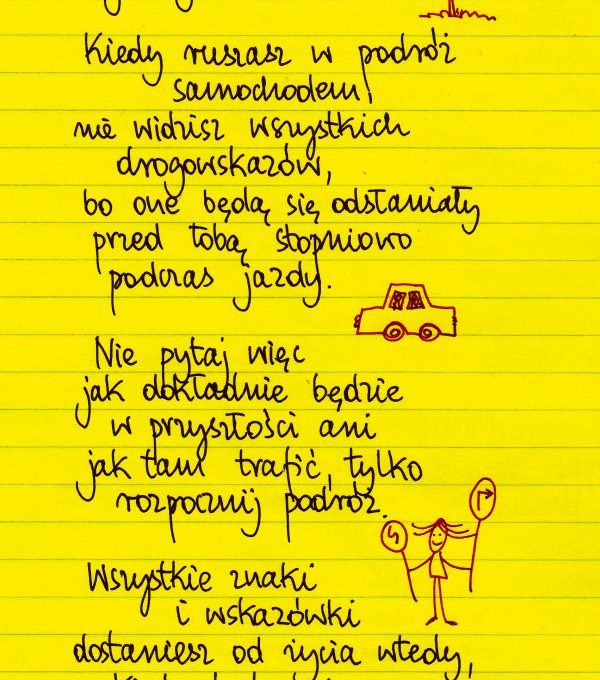 Kiedy ruszasz w podróż
samochodem,
nie widzisz wszystkich
drogowskazów,
bo one będą się odsłaniały
przed tobą stopniowo
podczas jazdy.
Nie pytaj więc
jak dokładnie będzie
w przyszłości ani
jak tam trafić, tylko
rozpocznij podróż.
Wszystkie znaki
i wskazówki
dostaniesz od życia wtedy,